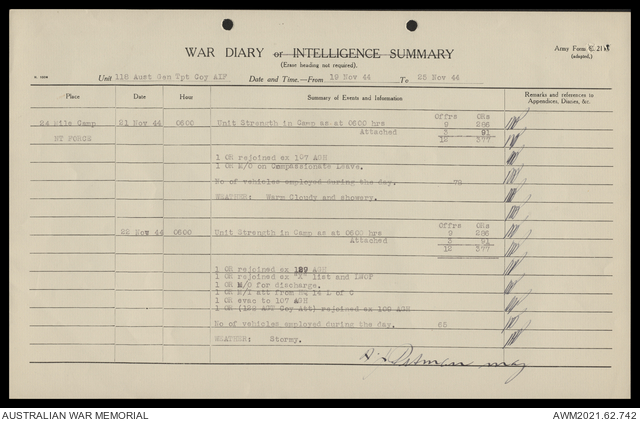 WAR DIARY or INTELLIGENCE SUMMARY
(Erase heading not required).
Army Form C. 2118
(adapted.)
Unit 118 Aust Gen Tpt Coy AIF Date and Time.—From 19 Nov 44 To 25 Nov 44
Place Date Hour Summary of Events and Information Remarks and references to
Appendices, Diaries, &c.
Offrs ORs
24 Mile Camp 21 Nov 44 0600 Unit Strength in Camp as at 0600 hrs 9 286
Attached 3 91
NT FORCE 12 377
1 OR rejoined ex 107 AGH
1 OR M/O on Compassionate Leave.
No of vehicles employed during the day. 79
WEATHER: Warm Cloudy and showery.
Offrs ORs
22 Nov 44 0600 Unit Strength in Camp as at 0600 hrs 9 286
Attached 3 91
12 377
1 OR rejoined ex 129 AGH
1 OR rejoined ex "X" list and LWOP
1 OR M/O for discharge.
1 OR M/I att from HQ 14 L of C
1 OR evac to 107 AGH
1 OR (122 AGT Coy Att) rejoined ex 100 AGH
No of vehicles employed during the day. 65
WEATHER: Stormy.
AUSTRALIAN WAR MEMORIAL AWM2021.62.742